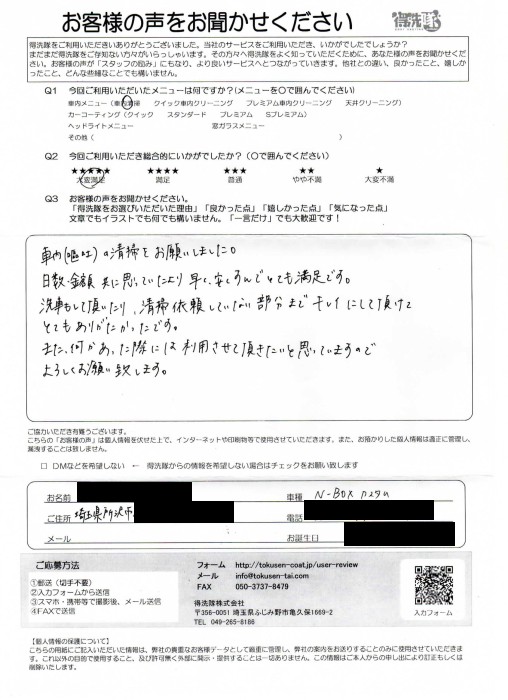 お客様の声をお聞かせください
得洗隊
得洗隊をご利用いただきありがとうございました。当社のサービスをご利用いただき、いかがでしたでしょうか?
まだまだ得洗隊をご存知ない方々がいらっしゃいます。その方々へ得洗隊をよく知っていただくために、あなた様の声をお聞かせください。お客様の声が「スタッフの励み」にもなり、より良いサービスへとつながっていきます。他社との違い、良かったこと、嬉しかったこと、どんな些細なことでも構いません。
Q1 今回ご利用いただいたメニューは何ですか?(メニューを〇で囲んでください)
車内メニュー(車内清掃 クイック車内クリーニング プレミアム車内クリーニング 天井クリーニング)
カーコーティング(クイック スタンダード プレミアム Sプレミアム)
ヘッドライトメニュー 窓ガラスメニュー
その他( )
Q2 今回ご利用いただき総合的にいかがでしたか?(〇で囲んでください)
★★★★★ ★★★★ ★★★ ★★ ★
大変満足 満足 普通 やや不満 大変不満
Q3 お客様の声をお聞かせください。
「得洗隊をお選びいただいた理由」「良かった点」「嬉しかった点」「気になった点」
文章でもイラストでも何でも構いません。「一言だけ」でも大歓迎です!
車内(嘔吐)の清掃をお願いしました。
日数・金額 共に思っていたより早く、安くすんでとても満足です。
洗車もして頂いたり、清掃依頼していない部分までキレイにして頂けて
とてもありがたかったです。
また、何かあった際には利用させて頂きたいと思っていますので
よろしくお願い致します。
ご協力いただき有難うございます。
こちらの「お客様の声」は個人情報を伏せた上で、インターネットや印刷物等で使用させていただきます。また、お預かりした個人情報は適正に管理し、漏洩することは致しません。
□ DMなどを希望しない ← 得洗隊からの情報を希望しない場合はチェックをお願い致します
お名前 車種 N-BOX カスタム
ご住所 埼玉県所沢市 電話
メール お誕生日
ご応募方法
①郵送(切手不要)
②入力フォームから送信
③スマホ・携帯等で撮影後、メール送信
④FAXで送信
フォーム http://tokusen-coat.jp/user-review
メール info@tokusen-tai.com
FAX 050-3737-8479
得洗隊株式会社
〒356-0051 埼玉県ふじみ野市亀久保1669-2
TEL 049-265-8186
入力フォーム
【個人情報の保護について】
こちらの用紙にご記入いただいた情報は、弊社の貴重なお客様データとして厳重に管理し、弊社の案内をお送りすることのみに使用させていただきます。これ以外の目的で使用すること、及び許可無く外部に開示・提供することは一切ありません。この情報はご本人からの申し出により訂正もしくは削除いたします。